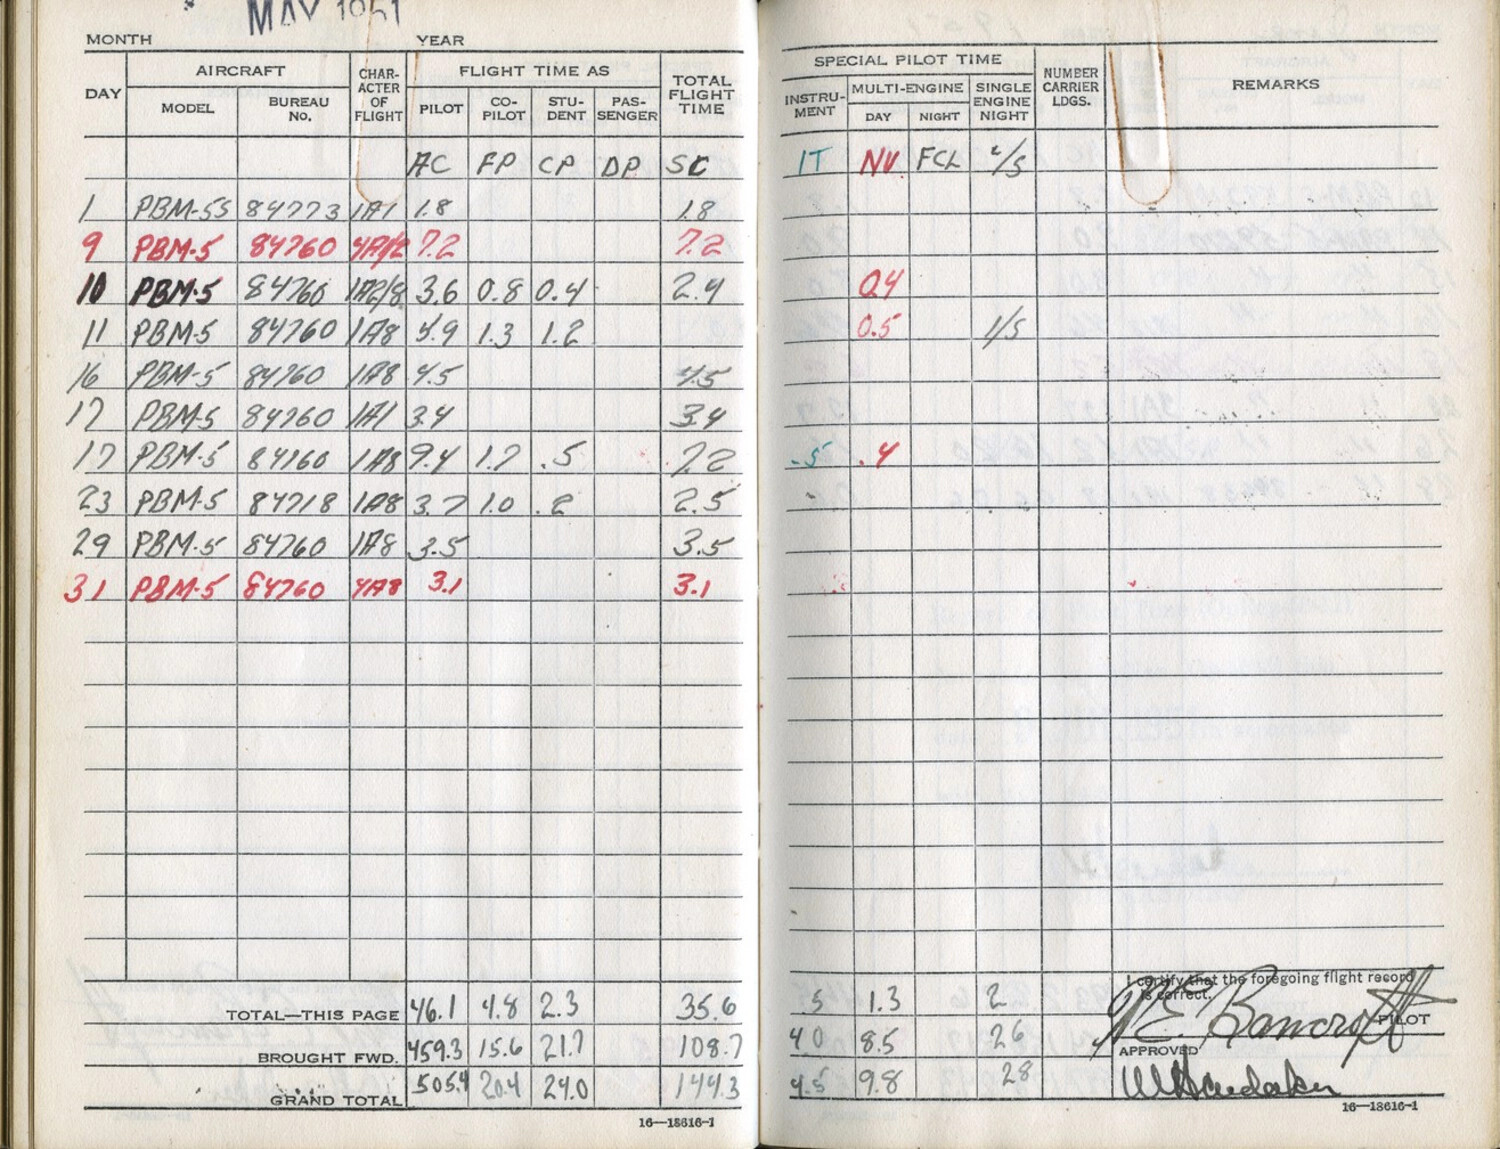 MAY 1951
MONTH YEAR
DAY AIRCRAFT CHAR-ACTER OF FLIGHT FLIGHT TIME AS TOTAL FLIGHT TIME
MODEL BUREAU No. PILOT CO-PILOT STU-DENT PAS-SENGER
SPECIAL PILOT TIME NUMBER CARRIER LDGS. REMARKS
INSTRU-MENT MULTI-ENGINE SINGLE ENGINE NIGHT
DAY NIGHT
AC FP CP DP SC IT NV FCL c/s
1 PBM-5S 84773 1A1 1.8 1.8
9 PBM-5 84760 4A/2 7.2 7.2
10 PBM-5 84760 1A2/8 3.6 0.8 0.4 2.4 0.4
11 PBM-5 84760 1A8 4.9 1.3 1.2 0.5 1/5
16 PBM-5 84760 1A8 4.5 4.5
17 PBM-5 84760 1A1 3.4 3.4
17 PBM-5 84760 1A8 9.4 1.7 .5 7.2 .5 .4
23 PBM-5 84718 1A8 3.7 1.0 .2 2.5
29 PBM-5 84760 1A8 3.5 3.5
31 PBM-5 84760 4A8 3.1 3.1
TOTAL—THIS PAGE 46.1 4.8 2.3 35.6 .5 1.3 2
BROUGHT FWD. 459.3 15.6 21.7 108.7 4.0 8.5 26
GRAND TOTAL 505.4 20.4 24.0 144.3 4.5 9.8 28
I certify that the foregoing flight record is correct.
Bancroft PILOT
APPROVED
16—18616-1
16—18616-1